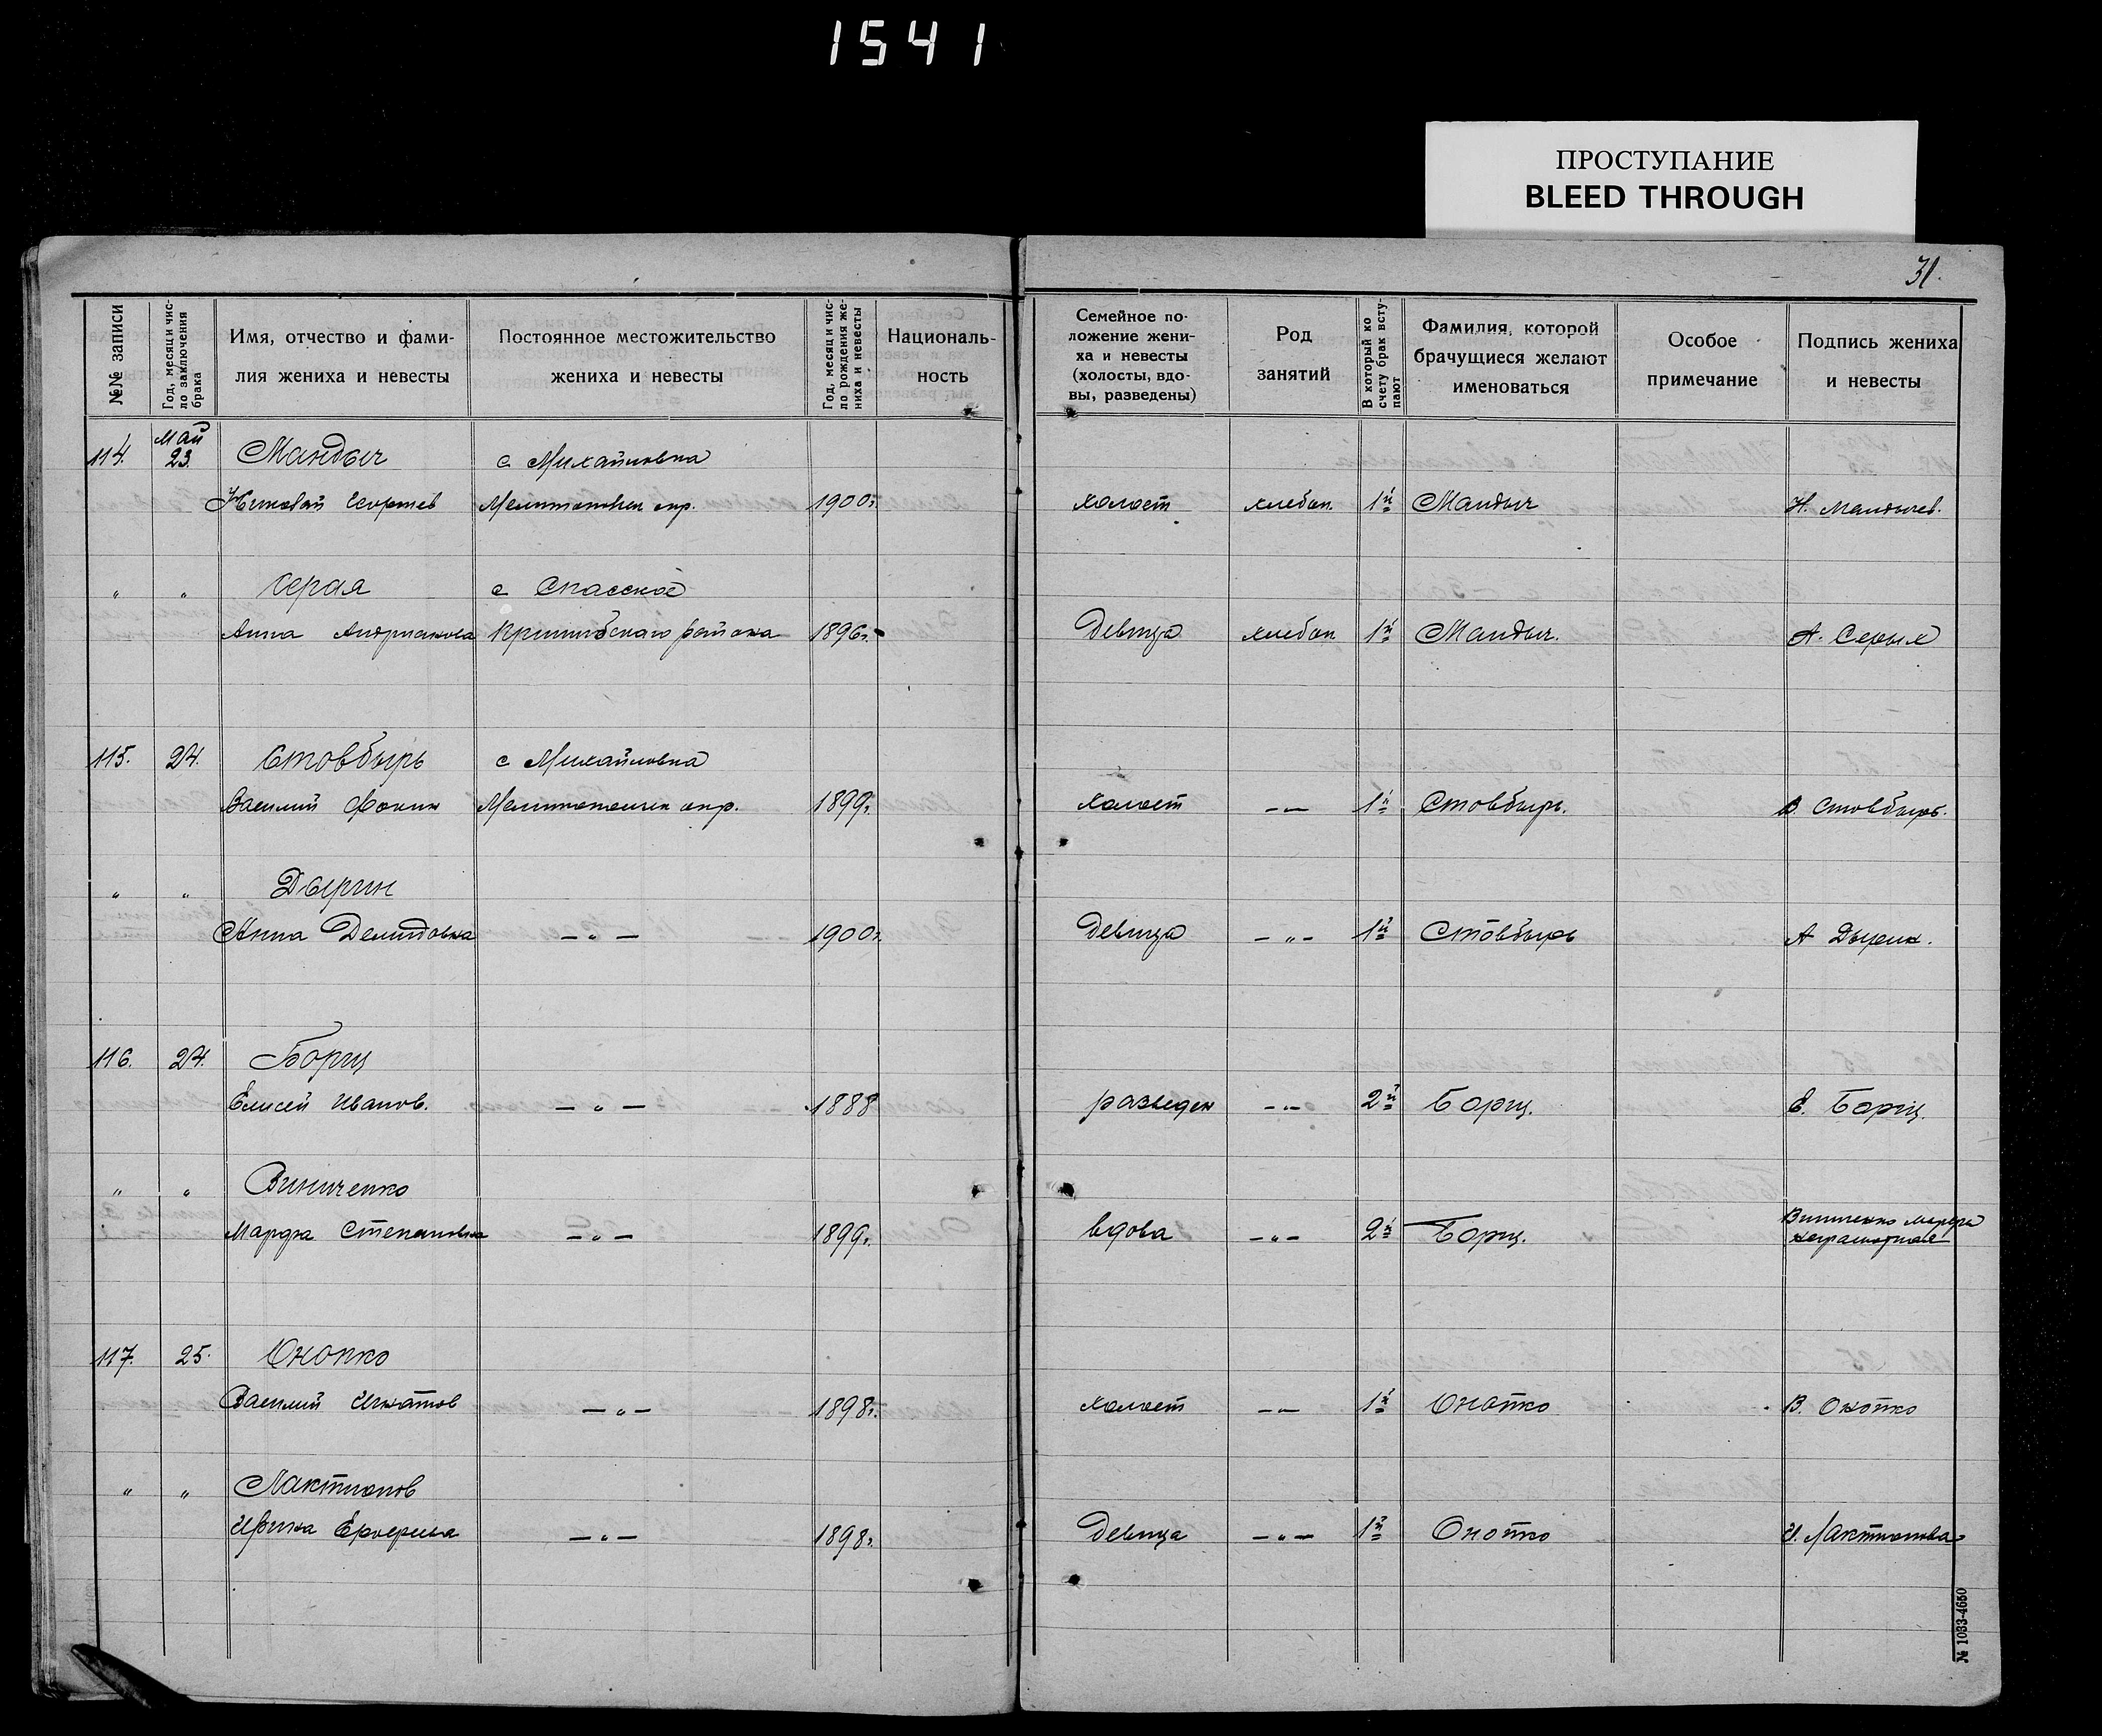 1541
ПРОСТУПАНИЕ
BLEED THROUGH
31.
№№ записи
Год, месяц и чис-
ло заключения
брака
Имя, отчество и фами-
лия жениха и невесты
Постоянное местожительство
жениха и невесты
Год, месяц и чис-
ло рождения же-
ниха и невесты
Националь-
ность
Семейное по-
ложение жени-
ха и невесты
(холосты, вдо-
вы, разведены)
Род
занятий
В который ко
счету брак всту-
пают
Фамилия, которой
брачущиеся желают
именоваться
Особое
примечание
Подпись жениха
и невесты
114. Май 23. Мандыч с Михайловка
Николай Мелитопольск окр. 1900г. холост хлебоп. 1й Мандыч Н. Мандычев.
" " Серая с Спасское
Анна 1896г. Девица хлебоп 1й Мандыч. А. Серых
115. 24. Стовбырь с Михайловка
Василий Фокин Мелитопольск окр. 1899г. холост -"- 1й Стовбырь. В. Стовбырь.
" " Дырин
Анна Демидовна -"- 1900г. Девица -"- 1й Стовбырь А Дырин.
116. 24. Борщ
Елисей Иванов. -"- 1888 разведен -"- 2й Борщ. Е. Борщ.
" " Виниченко
Марфа Степановна -"- 1899г. вдова -"- 2й Борщ. Виниченко Марфа
неграмотная
117. 25. Онопко
Василий Игнатов -"- 1898г. холост -"- 1й Онопко В. Онопко
" " Лактионов
Ирина -"- 1898г. Девица -"- 1й Онопко И. Лактионова
№ 1033-4650